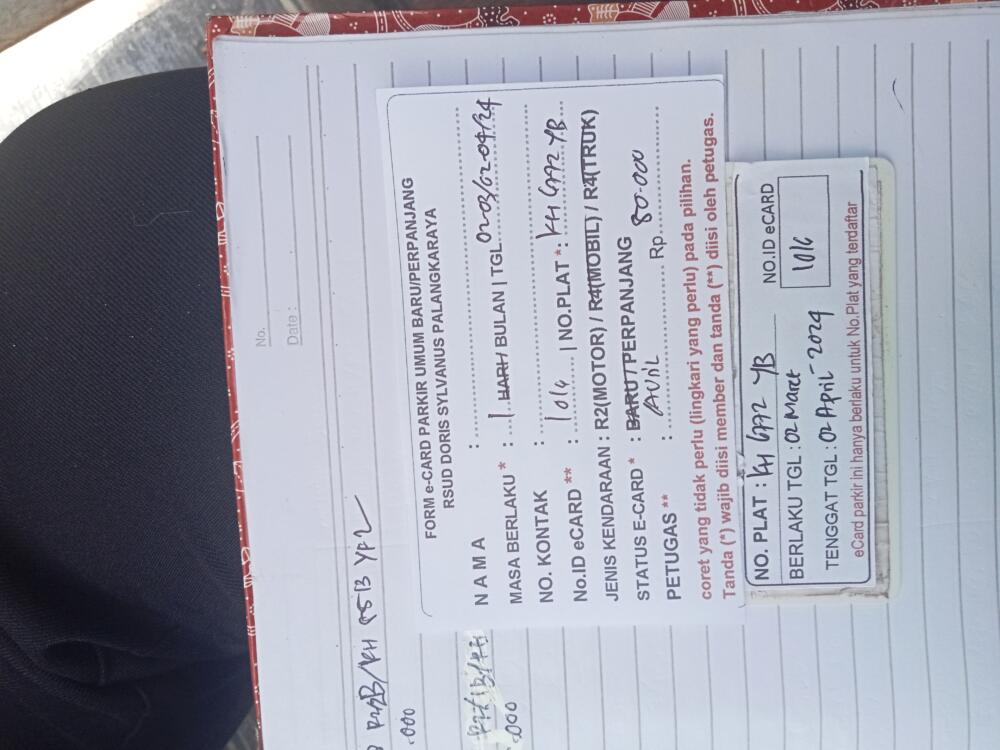 No.
Date :
KH 8513 YP2
.000
.000
FORM e-CARD PARKIR UMUM BARU/PERPANJANG
RSUD DORIS SYLVANUS PALANGKARAYA
N A M A : ....................
MASA BERLAKU * : 1 HARI BULAN | TGL. 02-03/02-04/24
NO. KONTAK : ....................
No.ID eCARD ** : 1016 | NO.PLAT * : KH 6772 YB
JENIS KENDARAAN : R2(MOTOR) / R4(MOBIL) / R4(TRUK)
STATUS E-CARD * : BARU / PERPANJANG
PETUGAS ** : Rp. 80.000
coret yang tidak perlu (lingkari yang perlu) pada pilihan.
Tanda (*) wajib diisi member dan tanda (**) diisi oleh petugas.
NO. PLAT : KH 6772 YB
NO.ID eCARD
BERLAKU TGL : 02 Maret
1016
TENGGAT TGL : 02 April 2024
eCard parkir ini hanya berlaku untuk No.Plat yang terdaftar